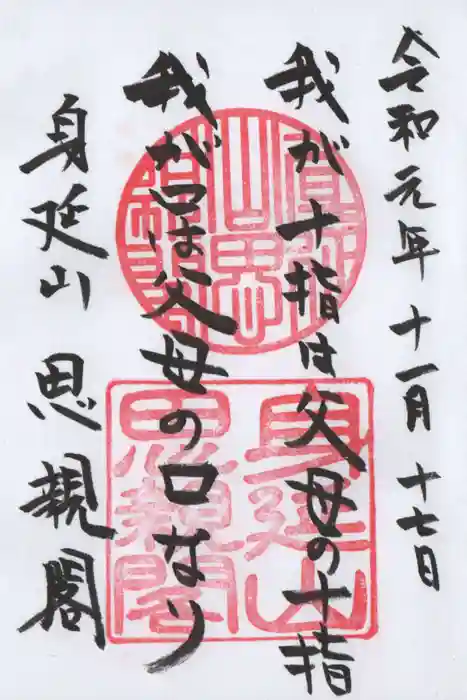 令和元年十一月十七日
我が十指は父母の十指
我が口は父母の口なり
身延山 思親閣
身延山
思親閣